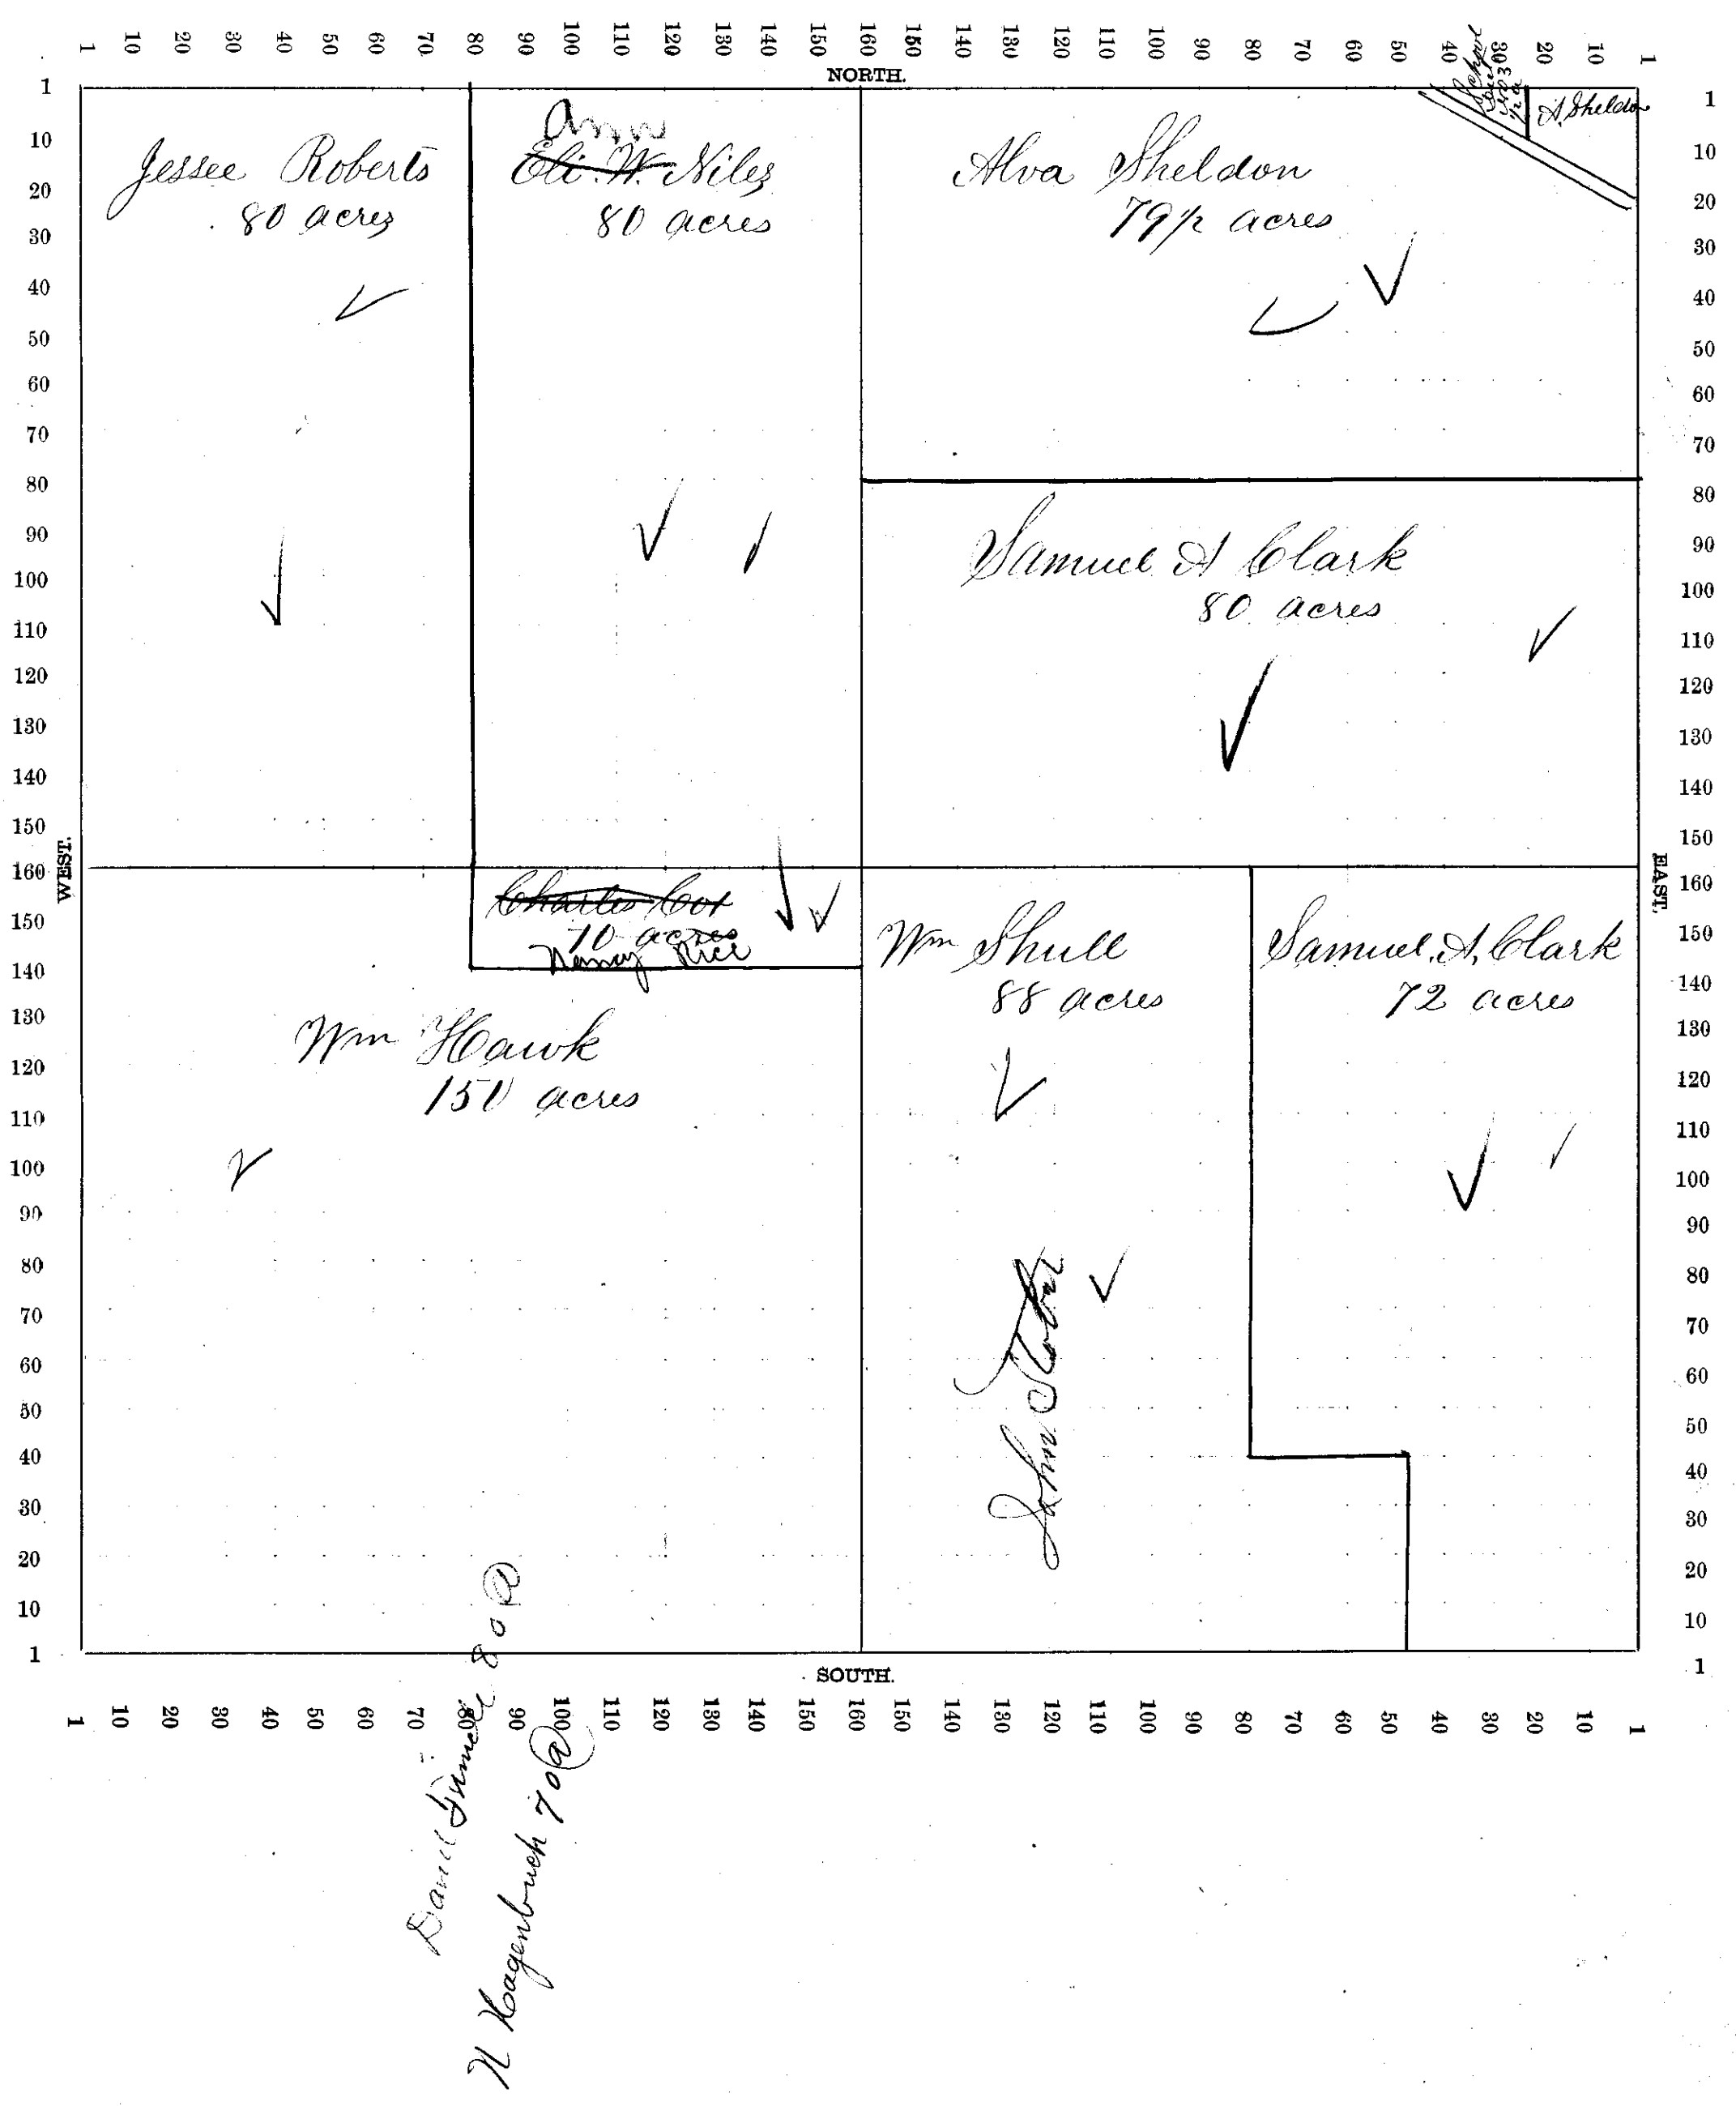 1 10 20 30 40 50 60 70 80 90 100 110 120 130 140 150 160 150 140 130 120 110 100 90 80 70 60 50 40 30 20 10 1
NORTH.
1 10 20 30 40 50 60 70 80 90 100 110 120 130 140 150 160 150 140 130 120 110 100 90 80 70 60 50 40 30 20 10 1
WEST.
Jessee Roberts
80 acres
Ann
Eli. W. Niles
80 acres
Alva Sheldon
79 1/2 acres
School
No 3
1/2 a
A. Sheldon
Samuel A Clark
80 acres
Charles Cox
10 acres
Nancy Rice
Wm Hawk
150 acres
Wm Shull
88 acres
John
Samuel. A. Clark
72 acres
1 10 20 30 40 50 60 70 80 90 100 110 120 130 140 150 160 150 140 130 120 110 100 90 80 70 60 50 40 30 20 10 1
EAST.
SOUTH.
1 10 20 30 40 50 60 70 80 90 100 110 120 130 140 150 160 150 140 130 120 110 100 90 80 70 60 50 40 30 20 10 1
Daniel 80 @
N Hagenbuch 70 @